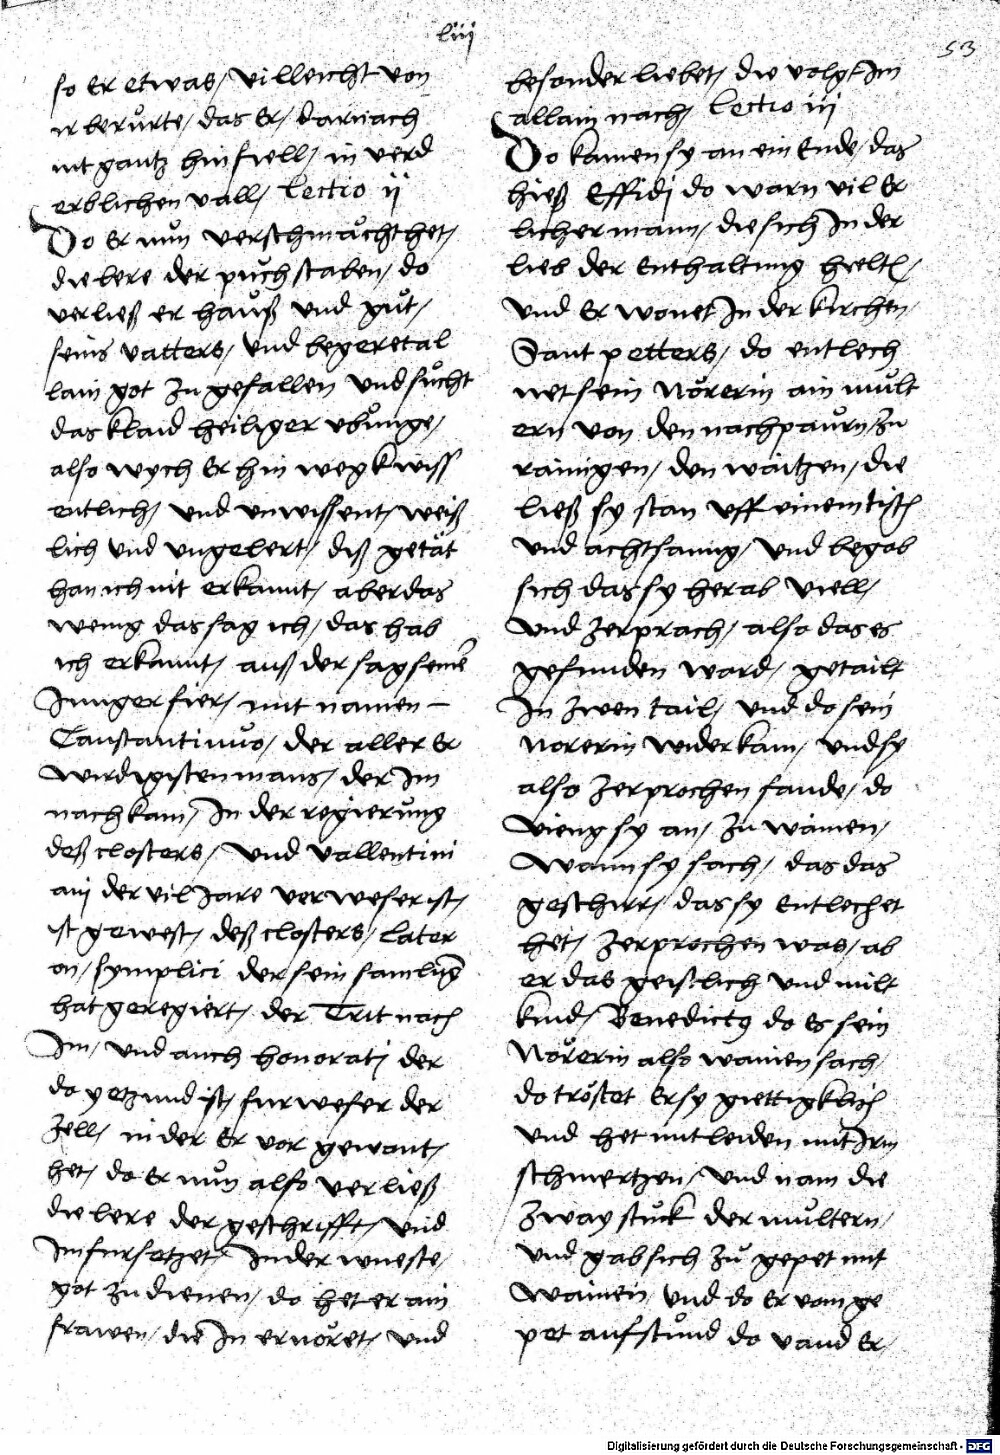 liij
53
so er etwas / villeicht von
ir berůrte / das er / darnach
nit gantz hin fiell / in verd
erblichen vall / Lectio ij
Do er nůn verschmächt het /
die lere der půchstaben / do
verließ er hauß und gůt /
seins vatters / und begeret al
lain got zu gefallen und sůcht
das klaid heiliger ubůnge /
also wych er hin wegk wiss
entlich / und unwissent / weiß
lich und ungelert / diß getät
han ich nit erkannt / aber das
wenig das sag ich / das hab
ich erkannt / auß der sag seiner
Junger fier / mit namen –
Constantinuo / der aller er
wirdigisten mans / der Im
nach kam / In der regierůng
deß closters / und vallentini
ain der vil Jare verweser ist /
ist gewest / deß closters / Later
on / symplici der sein samlung
hat geregiert / der Trit nach
Im / und auch honorati der
do yetzund ist / furweser der
zell / in der er vor gewont /
het / do er nůn also verließ
die lere der geschrifft / und
Im fursetzet / In der wueste /
got zu dienen / do het er ain
frawen / die In ernöret / und
besonder liebet / die volgt Im
allain nach / Lectio iij
Do kamen sy an ein Ende / das
hieß Effidi do warn vil er
licher mann / die sich In der
lieb der Enthaltung hielten /
und er wonet In der kirchen /
Sant petters / do entlech
net sein Nörerin ain můlt
ern von den nachpaůrn / zu
rainigen / den waitzen / die
ließ sy stan uff einem tisch
und achtsamig / und begab
sich das sy herab viell /
und zerprach / also das es
gefunden ward / getailt
In zwen tail / und do sein
Norerin wider kam / und sy
also zerprochen fande / do
vieng sy an / zu wainen /
Wann sy sach / das das
geschirr / das sy Entlechet
het / zerprochen was / ab
er das geistlich und milt
kind / Benedictꝰ do es sein
Nörerin also wainen sach /
do tröstet er sy giettigklich
und het mitleiden mit Irm
schmertzen / und nam die
zway stuck der můltern /
und gab sich zů gepet mit
wainen / und do er vom ge
pet aufstůnd do vand er /
Digitalisierung gefördert durch die Deutsche Forschungsgemeinschaft - DFG